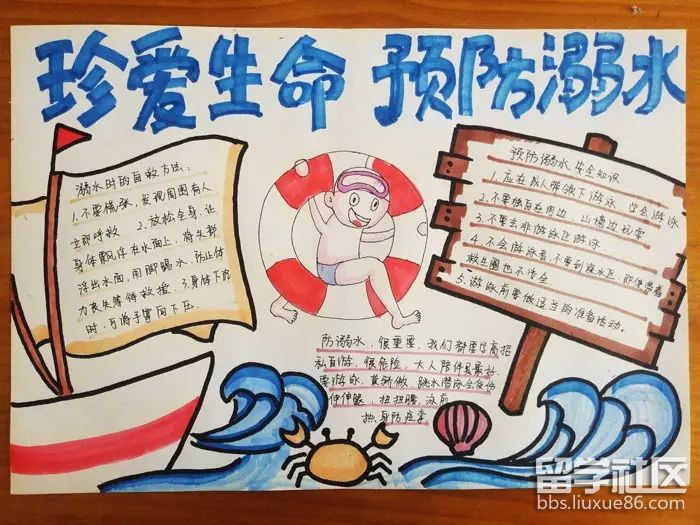 珍爱生命 预防溺水
溺水时的自救方法:
1.不要慌张,发现周围有人
立即呼救 2.放松全身,让
身体飘浮在水面上,将头部
浮出水面,用脚踢水,防止体
力丧失等待救援 3.身体下沉
时,可将手掌向下压
预防溺水安全知识
1.应在成人带领下游泳 学会游泳
2.不要独自在 边 山塘边玩耍
3.不要去非游泳区游泳
4.不会游泳者,不要到深水区,即使带着
救生圈也不安全
5.游泳前要做适当的准备活动。
防溺水,很重要,我们都要 高招
私自游,很危险,大人陪伴是最好
要游泳, 做,跳水潜泳会受伤
伸伸腿,扭扭腰,泳前
热身防痉挛
留学社区
bbs.liuxue86.com